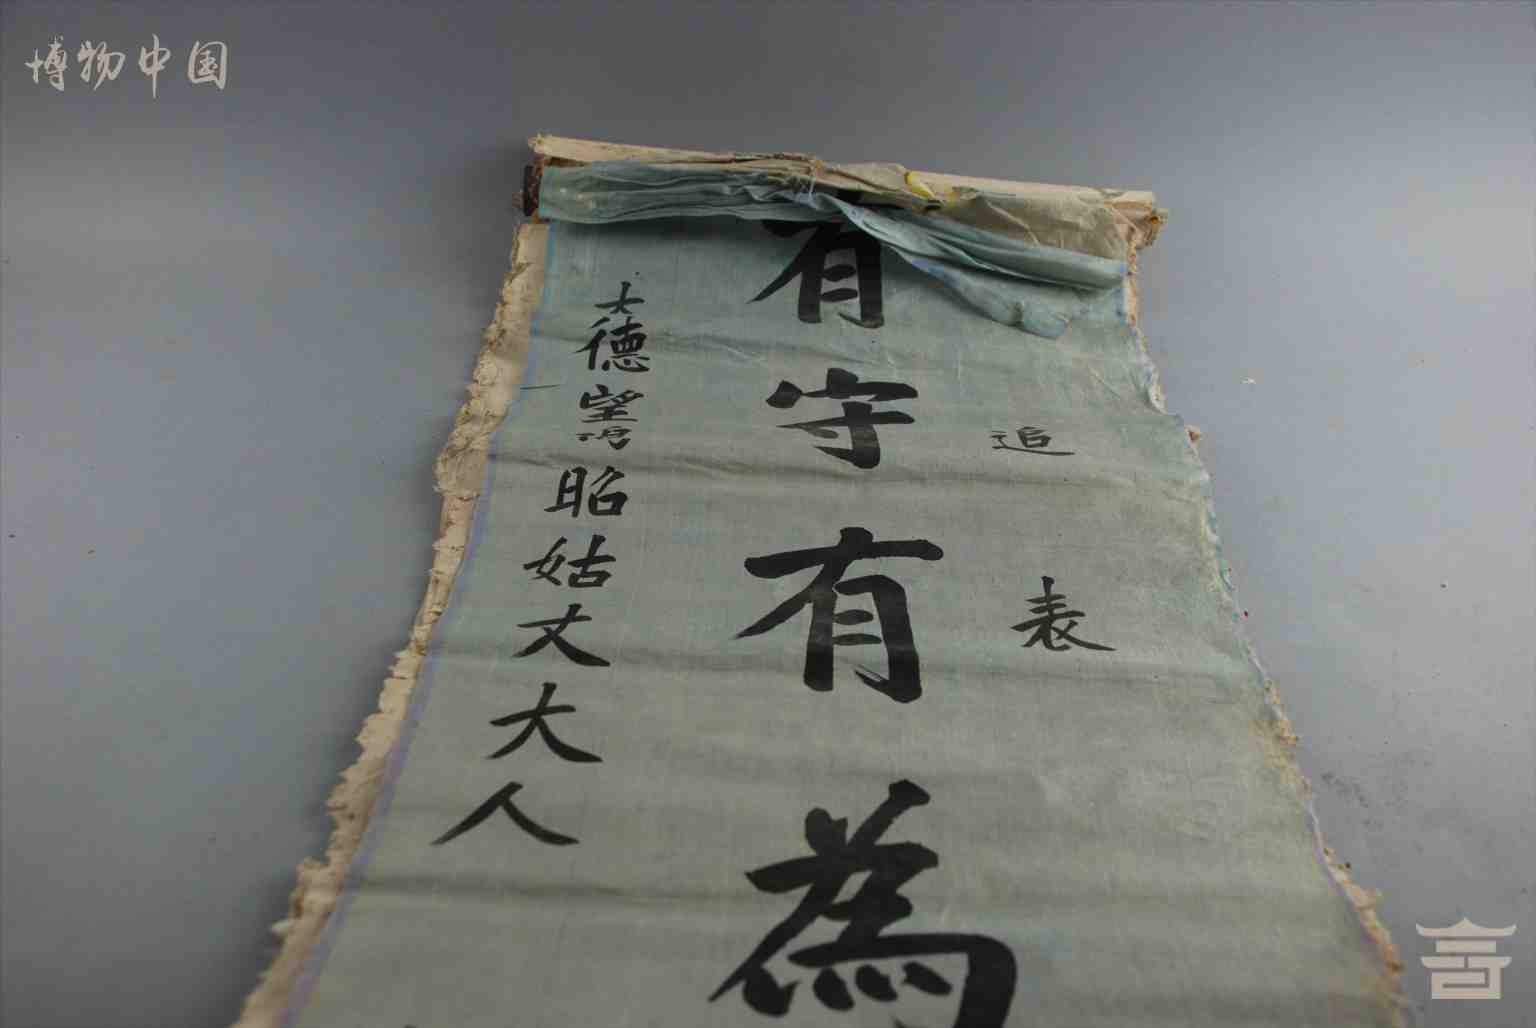 博物中国
追表
有守有為
大德望昭姑丈大人